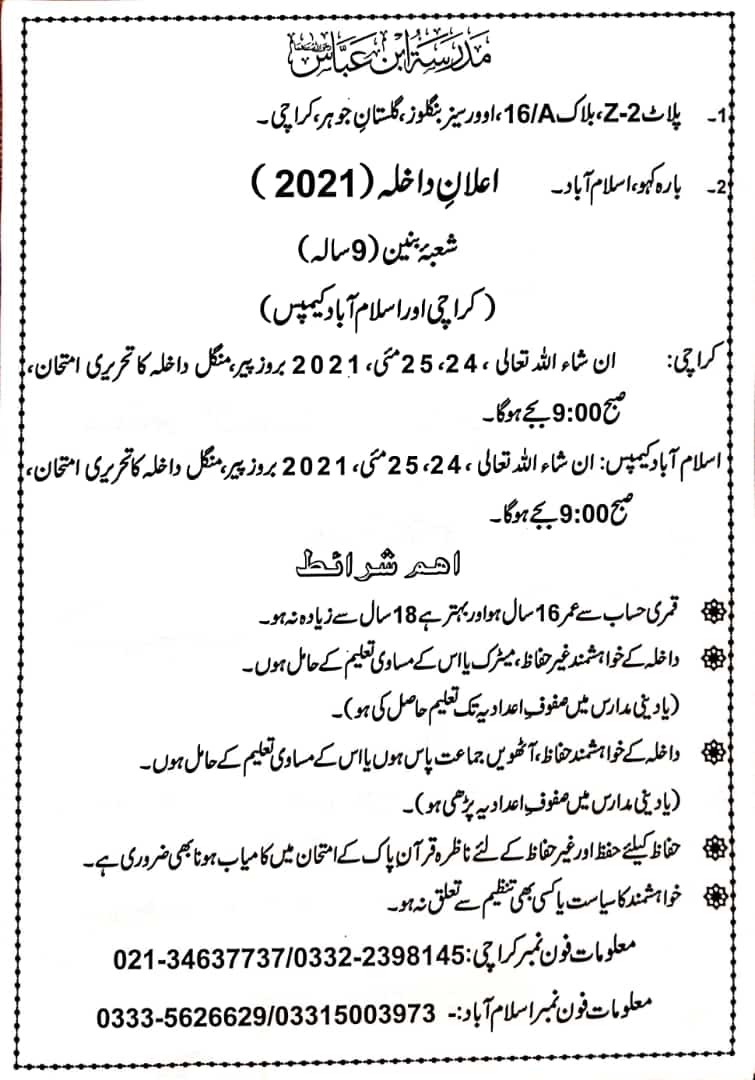 مَدرَسَۃُ ابن عَبَّاس رضی اللہ عنہما
1۔ پلاٹ Z-2، بلاک 16/A، اوورسیز بنگلوز، گلستانِ جوہر، کراچی۔
2۔ بارہ کہو، اسلام آباد۔ اعلانِ داخلہ (2021)
شعبۂ بنین (9 سالہ)
(کراچی اور اسلام آباد کیمپس)
کراچی: ان شاء اللہ تعالی ، 24، 25 مئی، 2021 بروز پیر، منگل داخلہ کا تحریری امتحان،
صبح 9:00 بجے ہوگا۔
اسلام آباد کیمپس: ان شاء اللہ تعالی ، 24، 25 مئی، 2021 بروز پیر، منگل داخلہ کا تحریری امتحان،
صبح 9:00 بجے ہوگا۔
اهم شرائط
قمری حساب سے عمر 16 سال ہو اور بہتر ہے 18 سال سے زیادہ نہ ہو۔
داخلہ کے خواہشمند غیر حفاظ، میٹرک یا اس کے مساوی تعلیم کے حامل ہوں۔
(یا دینی مدارس میں صفوفِ اعدادیہ تک تعلیم حاصل کی ہو)۔
داخلہ کے خواہشمند حفاظ، آٹھویں جماعت پاس ہوں یا اس کے مساوی تعلیم کے حامل ہوں۔
(یا دینی مدارس میں صفوفِ اعدادیہ پڑھی ہو)۔
حفاظ کیلئے حفظ اور غیر حفاظ کے لئے ناظرہ قرآن پاک کے امتحان میں کامیاب ہونا بھی ضروری ہے۔
خواہشمند کا سیاست یا کسی بھی تنظیم سے تعلق نہ ہو۔
معلومات فون نمبر کراچی: 021-34637737/0332-2398145
معلومات فون نمبر اسلام آباد:- 0333-5626629/03315003973